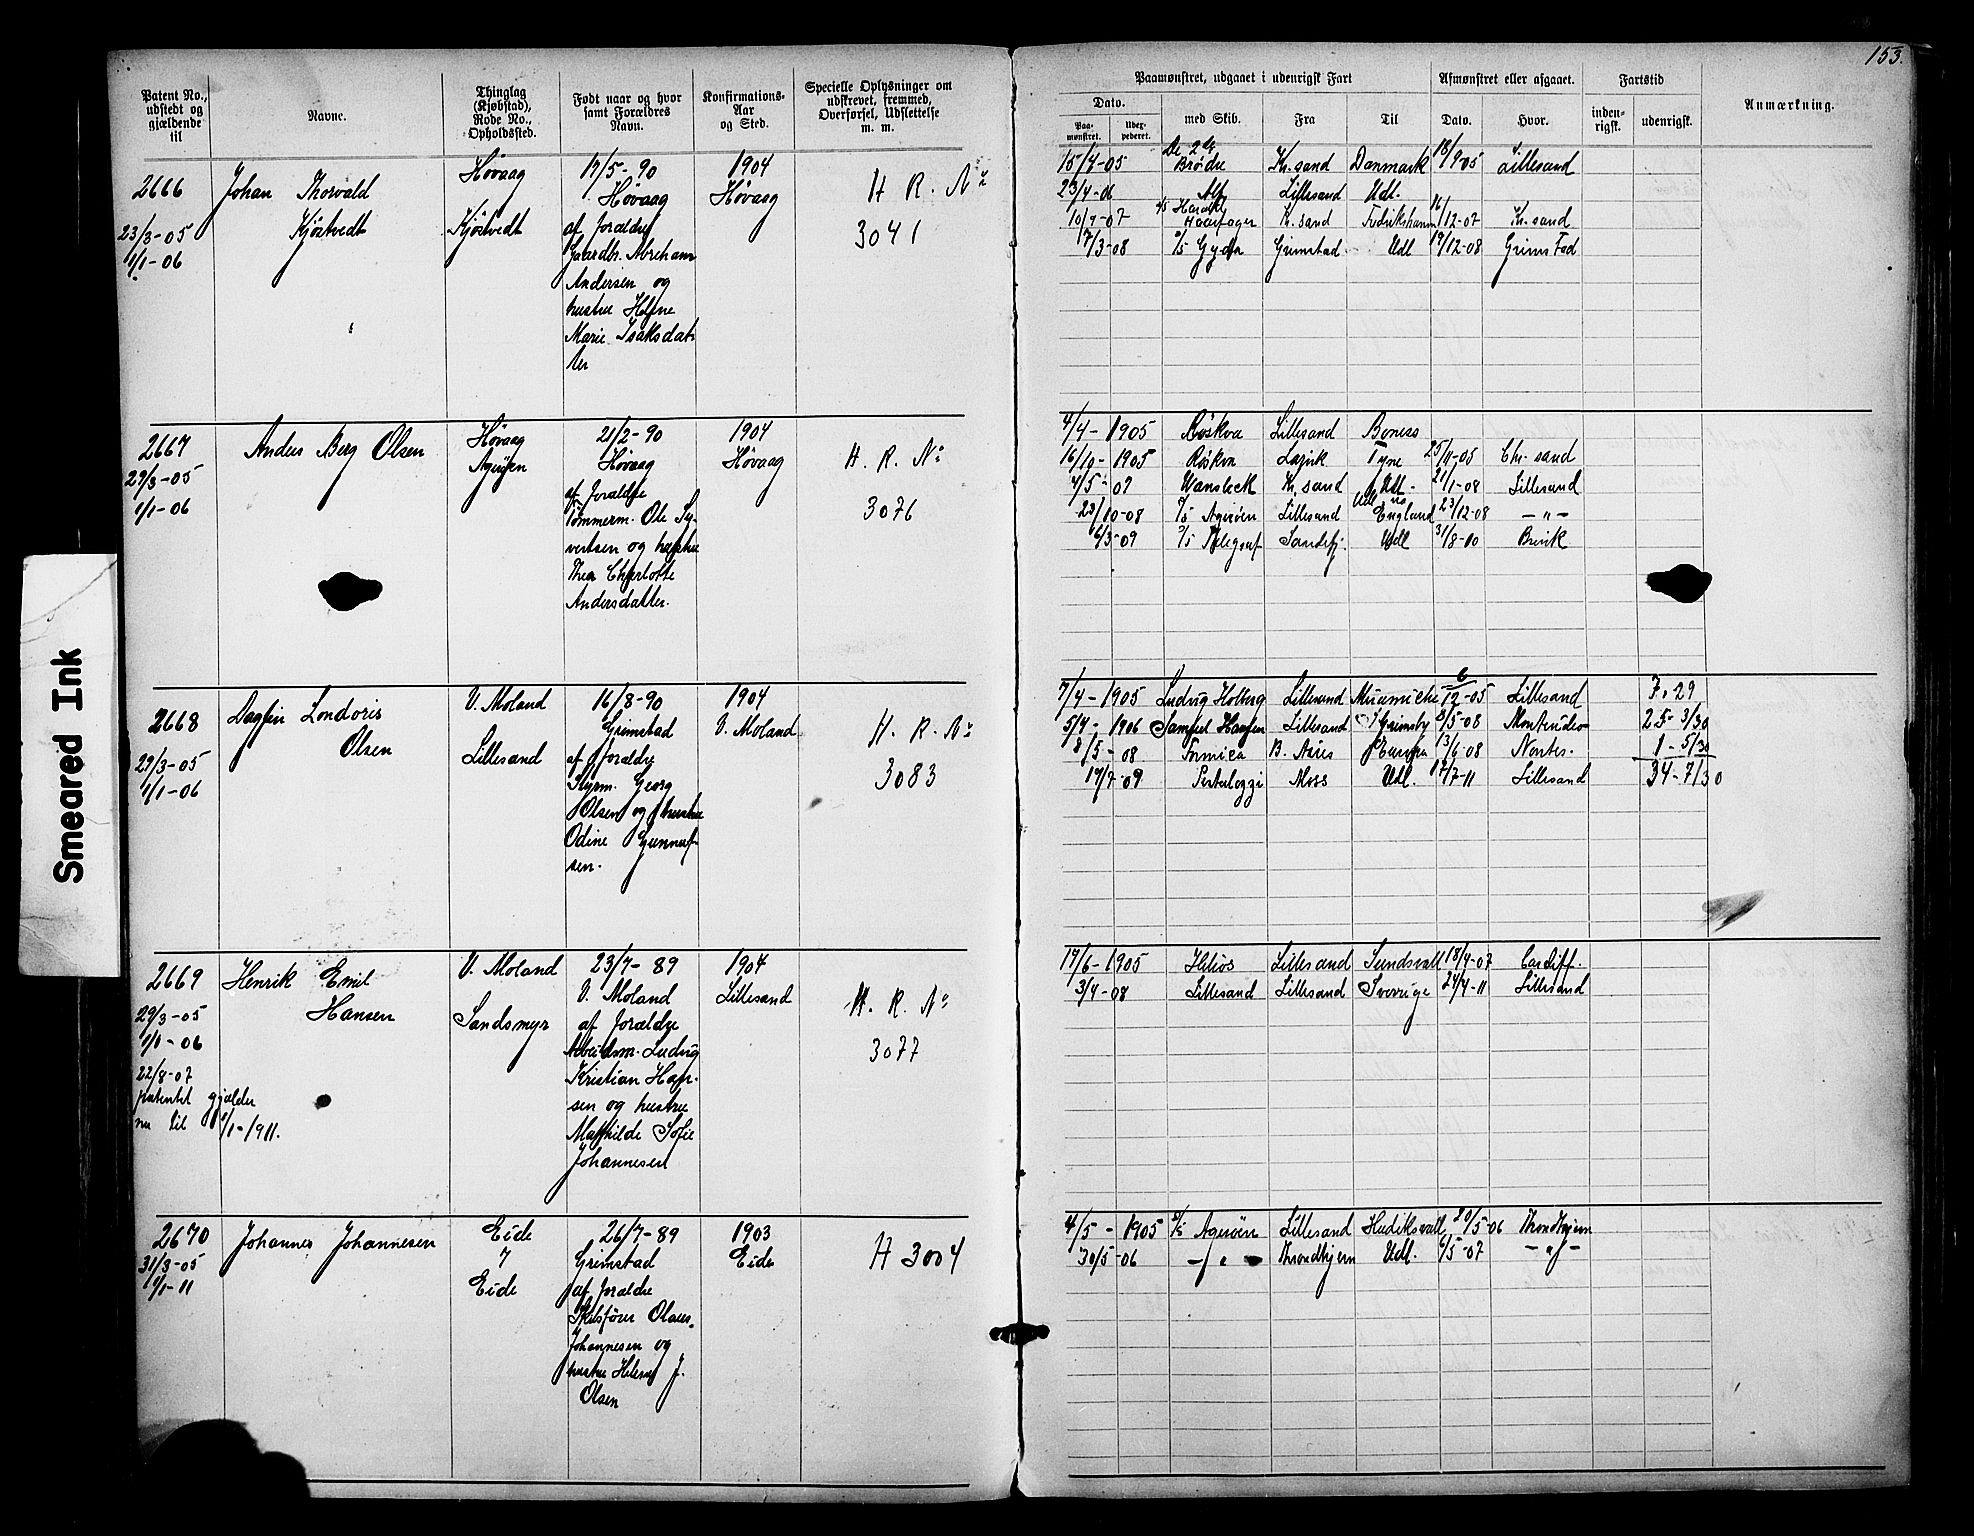 153.
Smeared Ink
Patent No., udstedt og gjældende til
Navne.
Thinglag (Kjøbstad), Rode No., Opholdssted.
Født naar og hvor samt Forældres Navn.
Konfirmations-Aar og Sted.
Specielle Oplysninger om udskrevet, fremmed, Overførsel, Udslettelse m. m.
Paamønstret, udgaaet i udenrigsk Fart
Afmønstret eller afgaaet.
Fartstid
Anmærkning.
Dato.
Paa-mønstret.
Udex-pederet.
med Skib.
Fra
Til
Dato.
Hvor.
inden-rigsk.
udenrigsk.
2666
23/3-05
1/1-06
Johan Thorvald
Kjøstvedt
Høvaag
Kjøstvedt
17/5-90
Høvaag
af Forældre
Gaardbr. Abraham
Andersen og
hustru Helene
Marie Isaksdat-
ter
1904
Høvaag
H. R. No
3041
15/4-05 De 2de Brødre Kr.sand Danmark 18/9-05 Lillesand
23/4-06 Alf Lillesand Udl.
10/9-07 Harald Haarfager Kr.sand Fredrikshamn 16/12-07 Kr.sand
7/3-08 S/S Gyda Grimstad Udl 19/12-08 Grimstad
2667
29/3-05
1/1-06
Anders Berg Olsen
Høvaag
Agerøen
21/2-90
Høvaag
af Forældre
Tømmerm. Ole Sy-
vertsen og hustru
Thea Charlotte
Andersdatter.
1904
Høvaag
H. R. No
3076
4/4-1905 Røskva Lillesand Boness
16/10-1905 Røskva Tyne 25/11-05 Chr.sand
4/5-07 Wansbeck Kr.sand Udl. 21/1-08 Lillesand
29/10-08 S/S Agerøen Lillesand England 23/12-08 -"-
6/3-09 S/S Telegraf Sandefj. Udl 31/8-10 Brevik
2668
29/3-05
1/1-06
Dagfin Londoris
Olsen
V. Moland
Lillesand
16/8-90
Grimstad
af Forældre
Styrm. Georg
Olsen og hustru
Odine Gunnuf-
sen.
1904
V. Moland
H. R. No
3083
7/4-1905 Ludvig Holberg Lillesand Miramichi 6/12-05 Lillesand 7. 29
5/4-1906 Samuel Hansen Lillesand Grimsby 8/5-08 Montevideo 25-3/30
8/5-08 Formica B. Aires Europa 13/6-08 Nantes. 1-5/30
17/7-09 Pestalozzi Moss Udl. 17/7-11 Lillesand 34-7/30
2669
29/3-05
1/1-06
22/8-07
patentet gjælder
nu til 1/1-1911.
Henrik Emil
Hansen
V. Moland
Sandsmyr
23/7-89
V. Moland
af Forældre
Arbeidsm. Ludvig
Kristian Han-
sen og hustru
Mathilde Sofie
Johannesen
1904
Lillesand
H. R. No
3077
17/6-1905 Helios Lillesand Sundsvall 18/9-07 Cardiff.
3/4-08 Lillesand Lillesand Sverrige 24/4-11 Lillesand
2670
31/3-05
1/1-11
Johannes Johannesen
Eide
7
Eide
26/7-89
Grimstad
af Forældre
Skibsfører Olaus
Johannesen og
hustru Helene J.
Olsen
1903
Eide
H 3004
4/5-1905 S/S Agerøen Lillesand Hudiksvall 20/5-06 Throndhjem
30/5-06 -"- Throndhjem Udl. 6/5-07 -"-